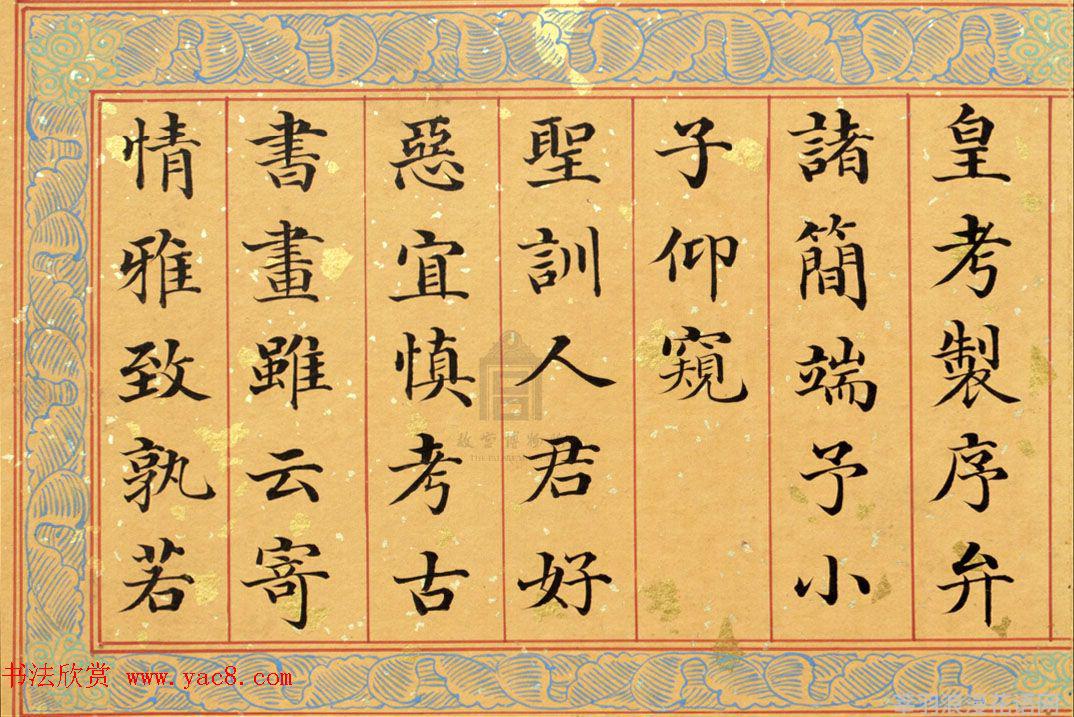 皇考製序弁
諸簡端予小
子仰窺
聖訓人君好
惡宜慎考古
書畫雖云寄
情雅致孰若
故宫博物
THE PALACE M
书法欣赏 www.yac8.com